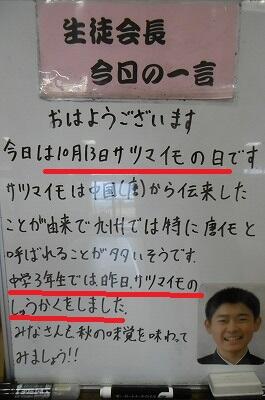 生徒会長
今日の一言
おはようございます
今日は10月13日サツマイモの日です
サツマイモは中国(唐)から伝来した
ことが由来で九州では特に唐イモと
呼ばれることが多いそうです.
中学3年生では昨日、サツマイモの
しゅうかくをしました.
みなさんも秋の味覚を味わって
みましょう!!